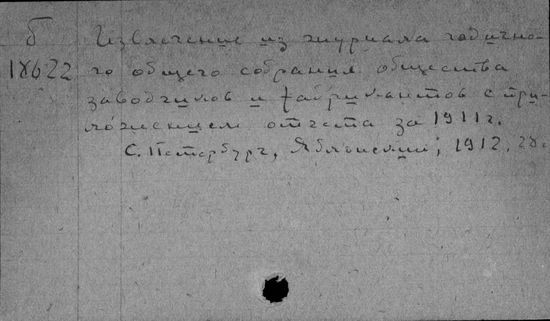 Б
18622
Извлечение из журнала годично-
го общего собрания общества
заводчиков и фабрикантов с при-
ложением отчета за 1911 г.
С. Петербург, Яблонский, 1912.